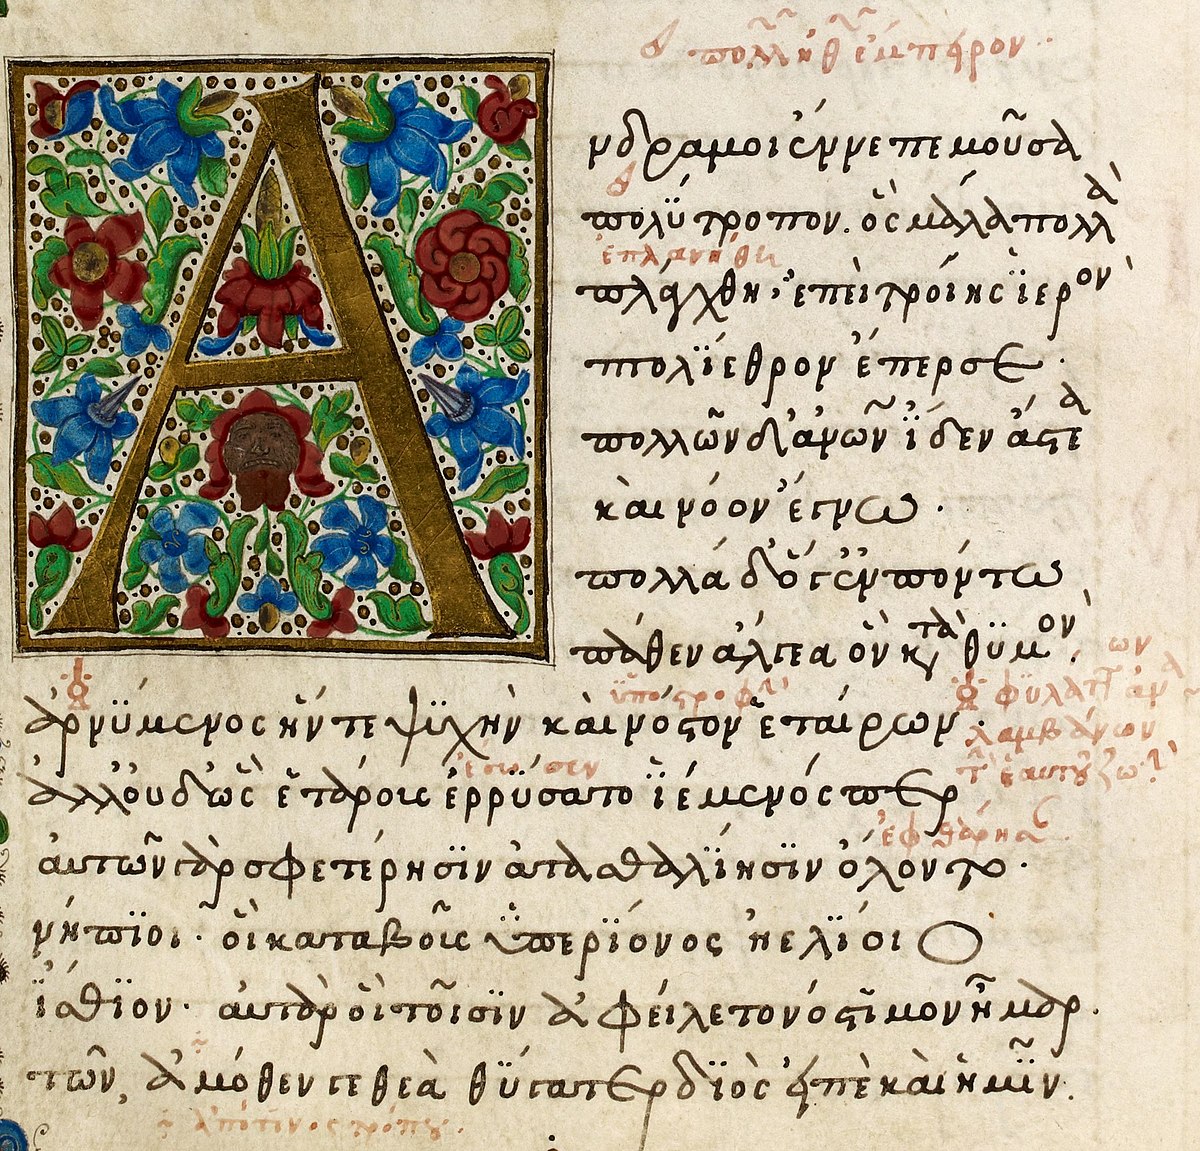 πολλὴν ἔμπειρον
Α
νδρα μοι ἔννεπε μοῦσα
πολύτροπον. ὃς μάλα πολλὰ
ἐπλανήθη
πλάγχθη, ἐπεὶ τροίης ἱερὸν
πτολίεθρον ἔπερσε.
πολλῶν δ' ἀνθρώπων ἴδεν ἄστεα
καὶ νόον ἔγνω.
πολλὰ δ' ὅγ' ἐν πόντω
πάθεν ἄλγεα ὃν κατὰ θυμὸν.
ὑποστροφὴν
φυλάττων
ἀρνύμενος ἥν τε ψυχὴν καὶ νόστον ἑταίρων.
λαμβάνων
ἔσωσεν
ἀλλ' οὐδ' ὣς ἑτάροις ἐρρύσατο ἱέμενός περ
ἐφθάρησαν
αὐτῶν γὰρ σφετέρησιν ἀτασθαλίησιν ὄλοντο.
νήπιοι. οἳ κατὰ βοῦς ὑπερίονος ἠελίοιο
ἤσθιον. αὐτὰρ ὁ τοῖσιν ἀφείλετο νόστιμον ἦμαρ.
τῶν, ἁμόθεν γε θεὰ θύγατερ διὸς εἰπὲ καὶ ἡμῖν.
ἀπό τινος τρόπου.